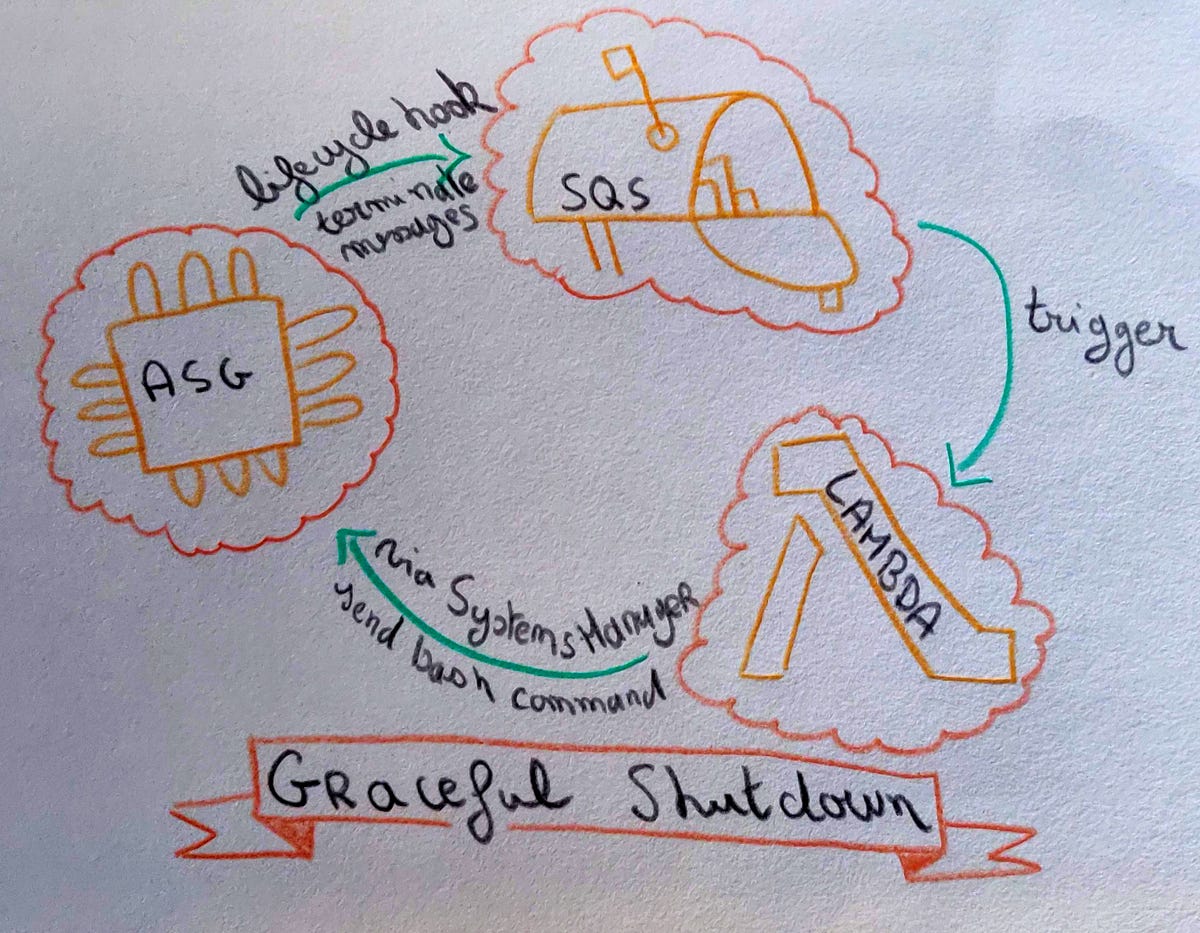 lifecycle hook
terminate
messages
SQS
trigger
ASG
LAMBDA
via Systems Manager
send bash command
Graceful Shutdown